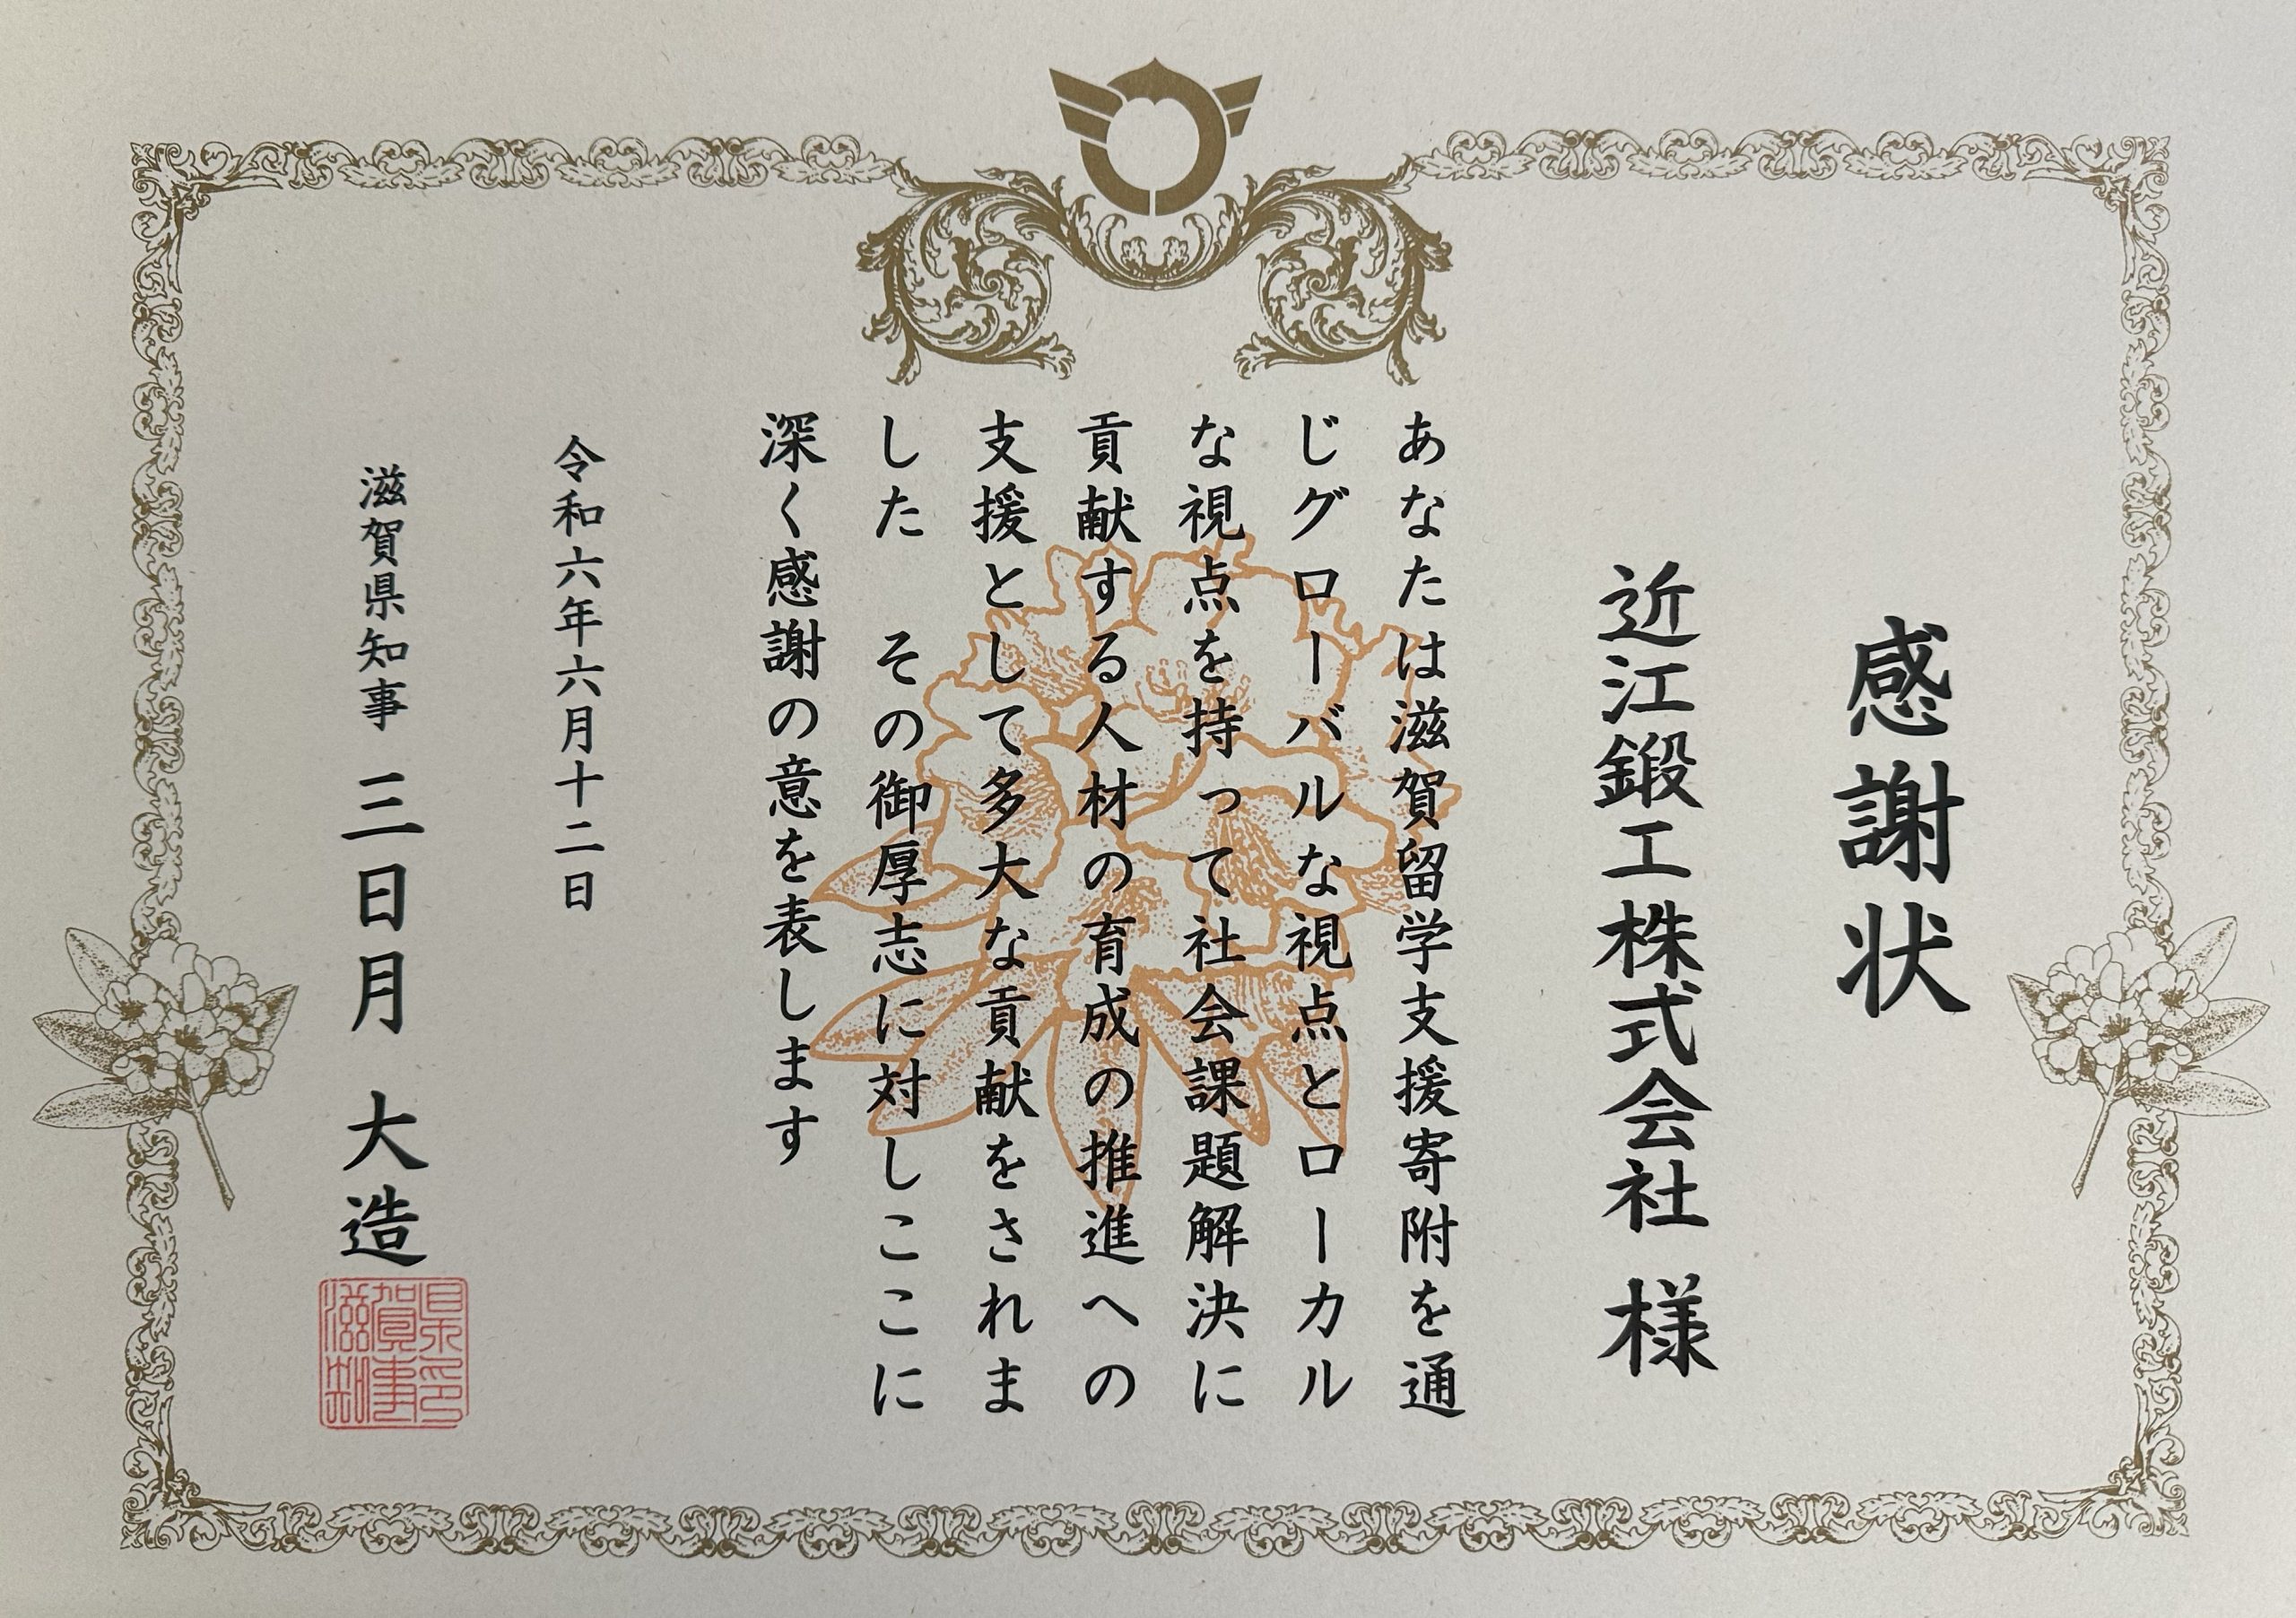 感謝状
近江鍛工株式会社 様
あなたは滋賀留学支援寄附を通
じグローバルな視点とローカル
な視点を持って社会課題解決に
貢献する人材の育成の推進への
支援として多大な貢献をされま
した　その御厚志に対しここに
深く感謝の意を表します
令和六年六月十二日
滋賀県知事 三日月 大造
滋賀県知事印